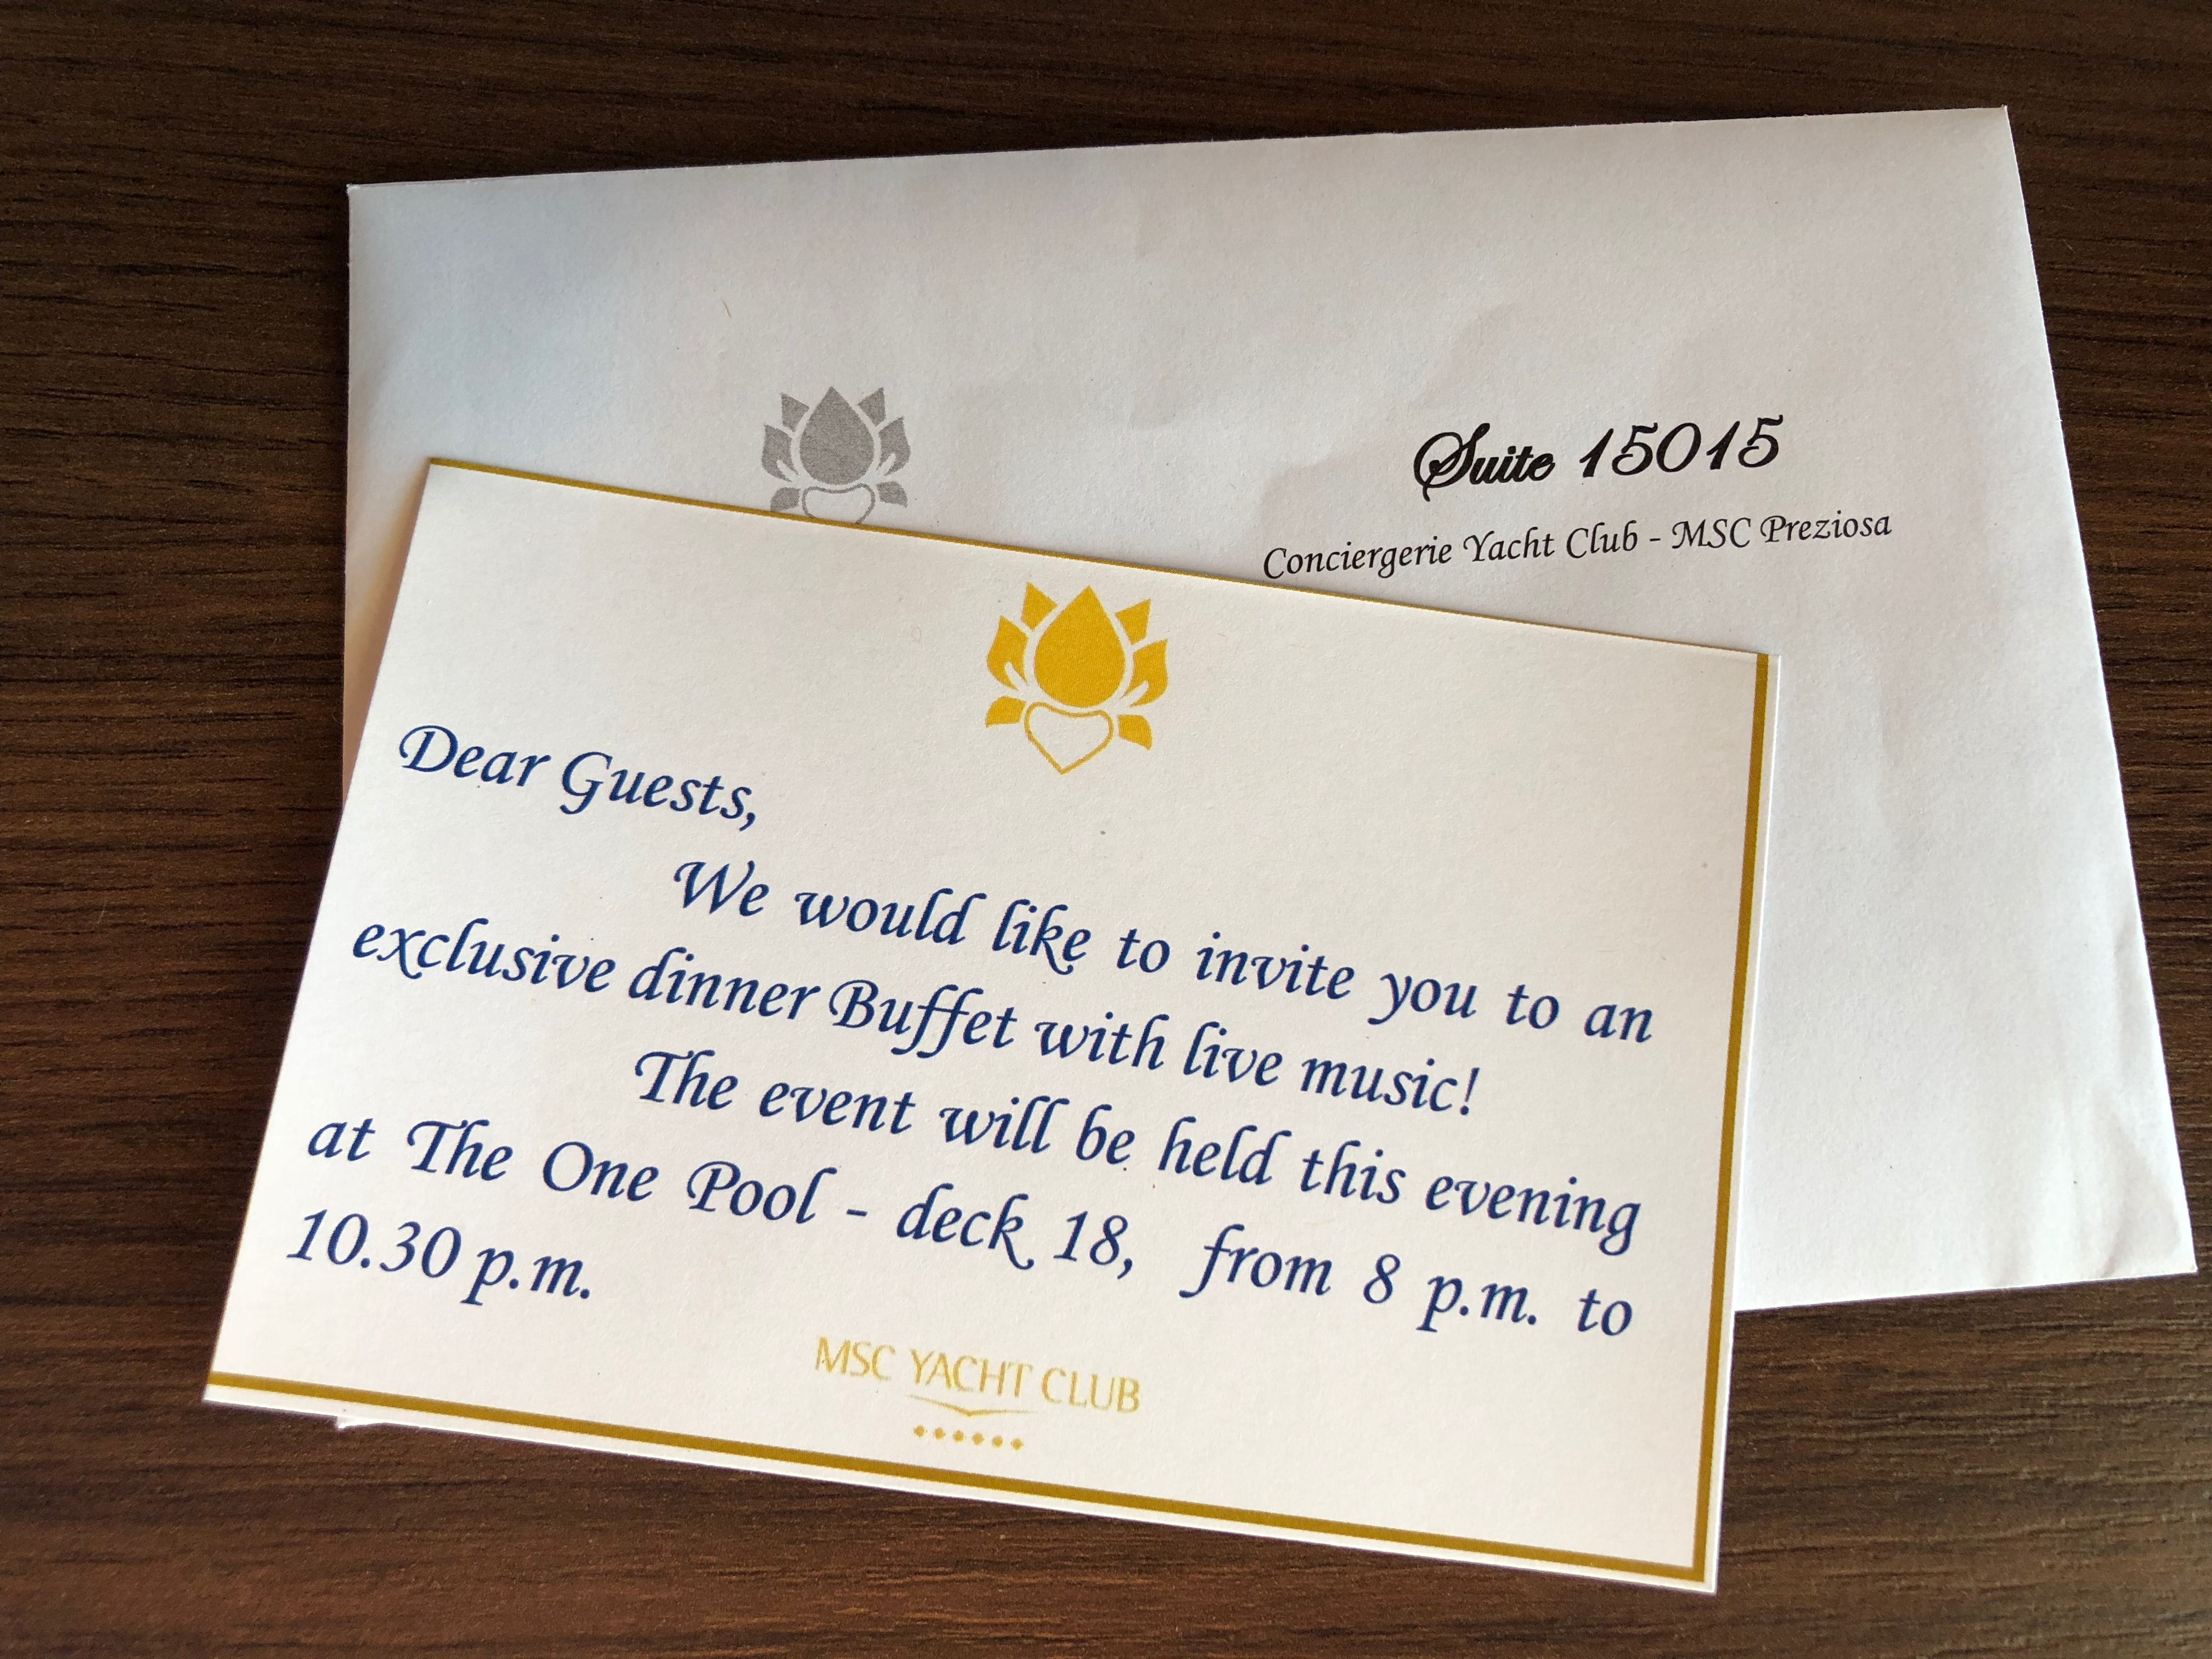 Suite 15015
Conciergerie Yacht Club - MSC Preziosa
Dear Guests,
We would like to invite you to an
exclusive dinner Buffet with live music!
The event will be held this evening
at The One Pool - deck 18, from 8 p.m. to
10.30 p.m.
MSC YACHT CLUB